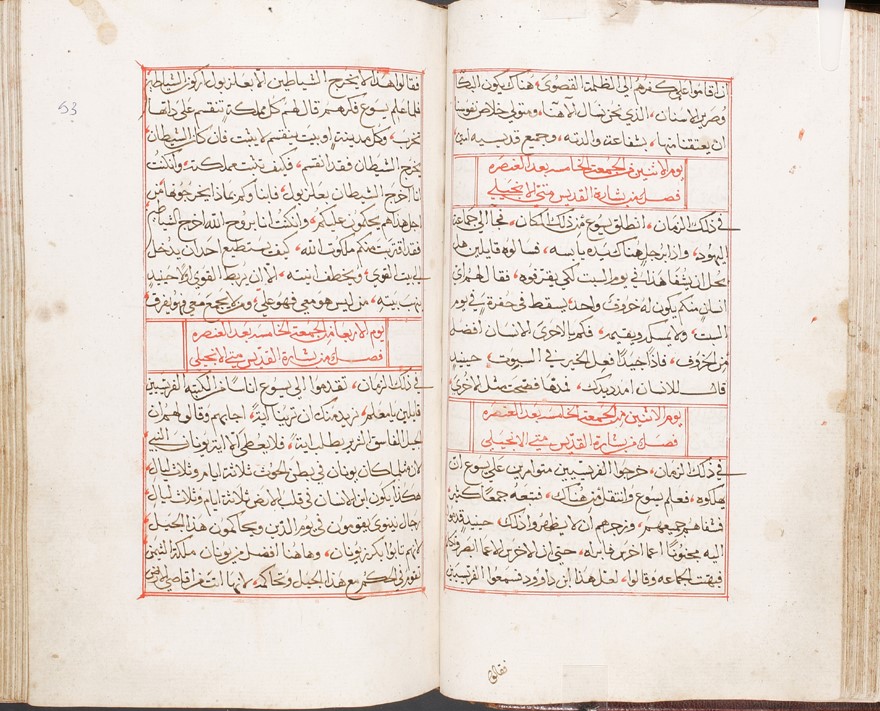 ان اقاموا على كفرهم الى الظلمة القصوى، هناك يكون البكا
وصرير الاسنان، الذي نحن نسال لاهنا، ومتولي خلاص نفوسنا
ان يعتقنا منها، بشفاعة والدته، وجميع قديسيه امين
يوم الاثنين في الجمعة الخامسه بعد العنصره
فصل من بشارة القديس متى الانجيلي
في ذلك الزمان، انطلق يسوع من ذلك المكان، فجا الى جماعة
اليهود، واذا برجل هناك يده يابسه، فسالوه قايلين هل
يحل ان يشفا هذا في يوم السبت لكي يقترفوه، فقال لهم اي
انسان منكم يكون له خروف واحد، يسقط في حفرة في يوم
السبت، ولا يمسكه ويقيمه، فكم بالاحرى الانسان افضل
من الخروف، فاذا جيدا فعل الخير في السبوت، حينيد
قال للانسان امدد يدك، فمدها فصحت مثل الاخرى
يوم الاثنين من الجمعة الخامسه بعد العنصره
فصل من بشارة القديس متى الانجيلي
في ذلك الزمان، خرجوا الفريسيين متوامرين على يسوع ان
يهلكوه، فعلم يسوع وانتقل من هناك، فتبعه جمعا كثيرا
فشفاهم جميعهم، وزجرهم ان لا يظهروا ذلك، حينيد قدموا
اليه مجنونا اعما اخرس فابراه، حتى ان الاخرس الاعما ابصر وتكلم
فبهتت الجماعه وقالوا، لعل هذا ابن داوود، فسمعوا الفريسيين
فقالوا
53
فقالوا هذا لا يخرج الشياطين الا بعلزبول اركون الشياطين
فلما علم يسوع فكرهم قال لهم كل مملكة تنقسم على ذاتها
تخرب، وكل مدينة او بيت ينقسم لا يثبت فان كان الشيطان
يخرج الشيطان فقد انقسم، فكيف تثبت مملكته، وان كنت
انا اخرج الشيطان بعلزبول، فابناوكم بماذا يخرجوها من
اجل هذا هم يحكمون عليكم، وان كنت انا بروح الله اخرج الشياطين
فقد اقتربت منكم ملكوت الله، كيف يستطيع احد ان يدخل
الى بيت القوي، ويخطف انيته، الا ان يربط القوي اولا حينيد
ينهب بيته، من ليس هو معي فهو علي، ومن لا يجمع معي فهو يفرق
يوم الاربعا من الجمعة الخامسه بعد العنصره
فصل من بشارة القديس متى الانجيلي
في ذلك الزمان، تقدموا الى يسوع اناسا من الكتبه الفريسيين
قايلين يا معلم، نريد منك ان ترينا اية، اجابهم وقال لهم ان
الجيل الفاسق الشرير يطلب اية، فلا يعطى الا اية يونان النبي
لانه مثلما كان يونان في بطن الحوت ثلاثة ايام وثلاث ليال
هكذا يكون ابن الانسان في قلب الارض ثلاثة ايام وثلاث ليال
رجال نينوى يقومون في يوم الدين ويحاكمون هذا الجيل
لانهم تابوا بكرز يونان، وهاهنا افضل من يونان ملكة التيمن
تقوم في الحكم مع هذا الجيل وتحاكمه، لانها اتت من اقاصي الارض